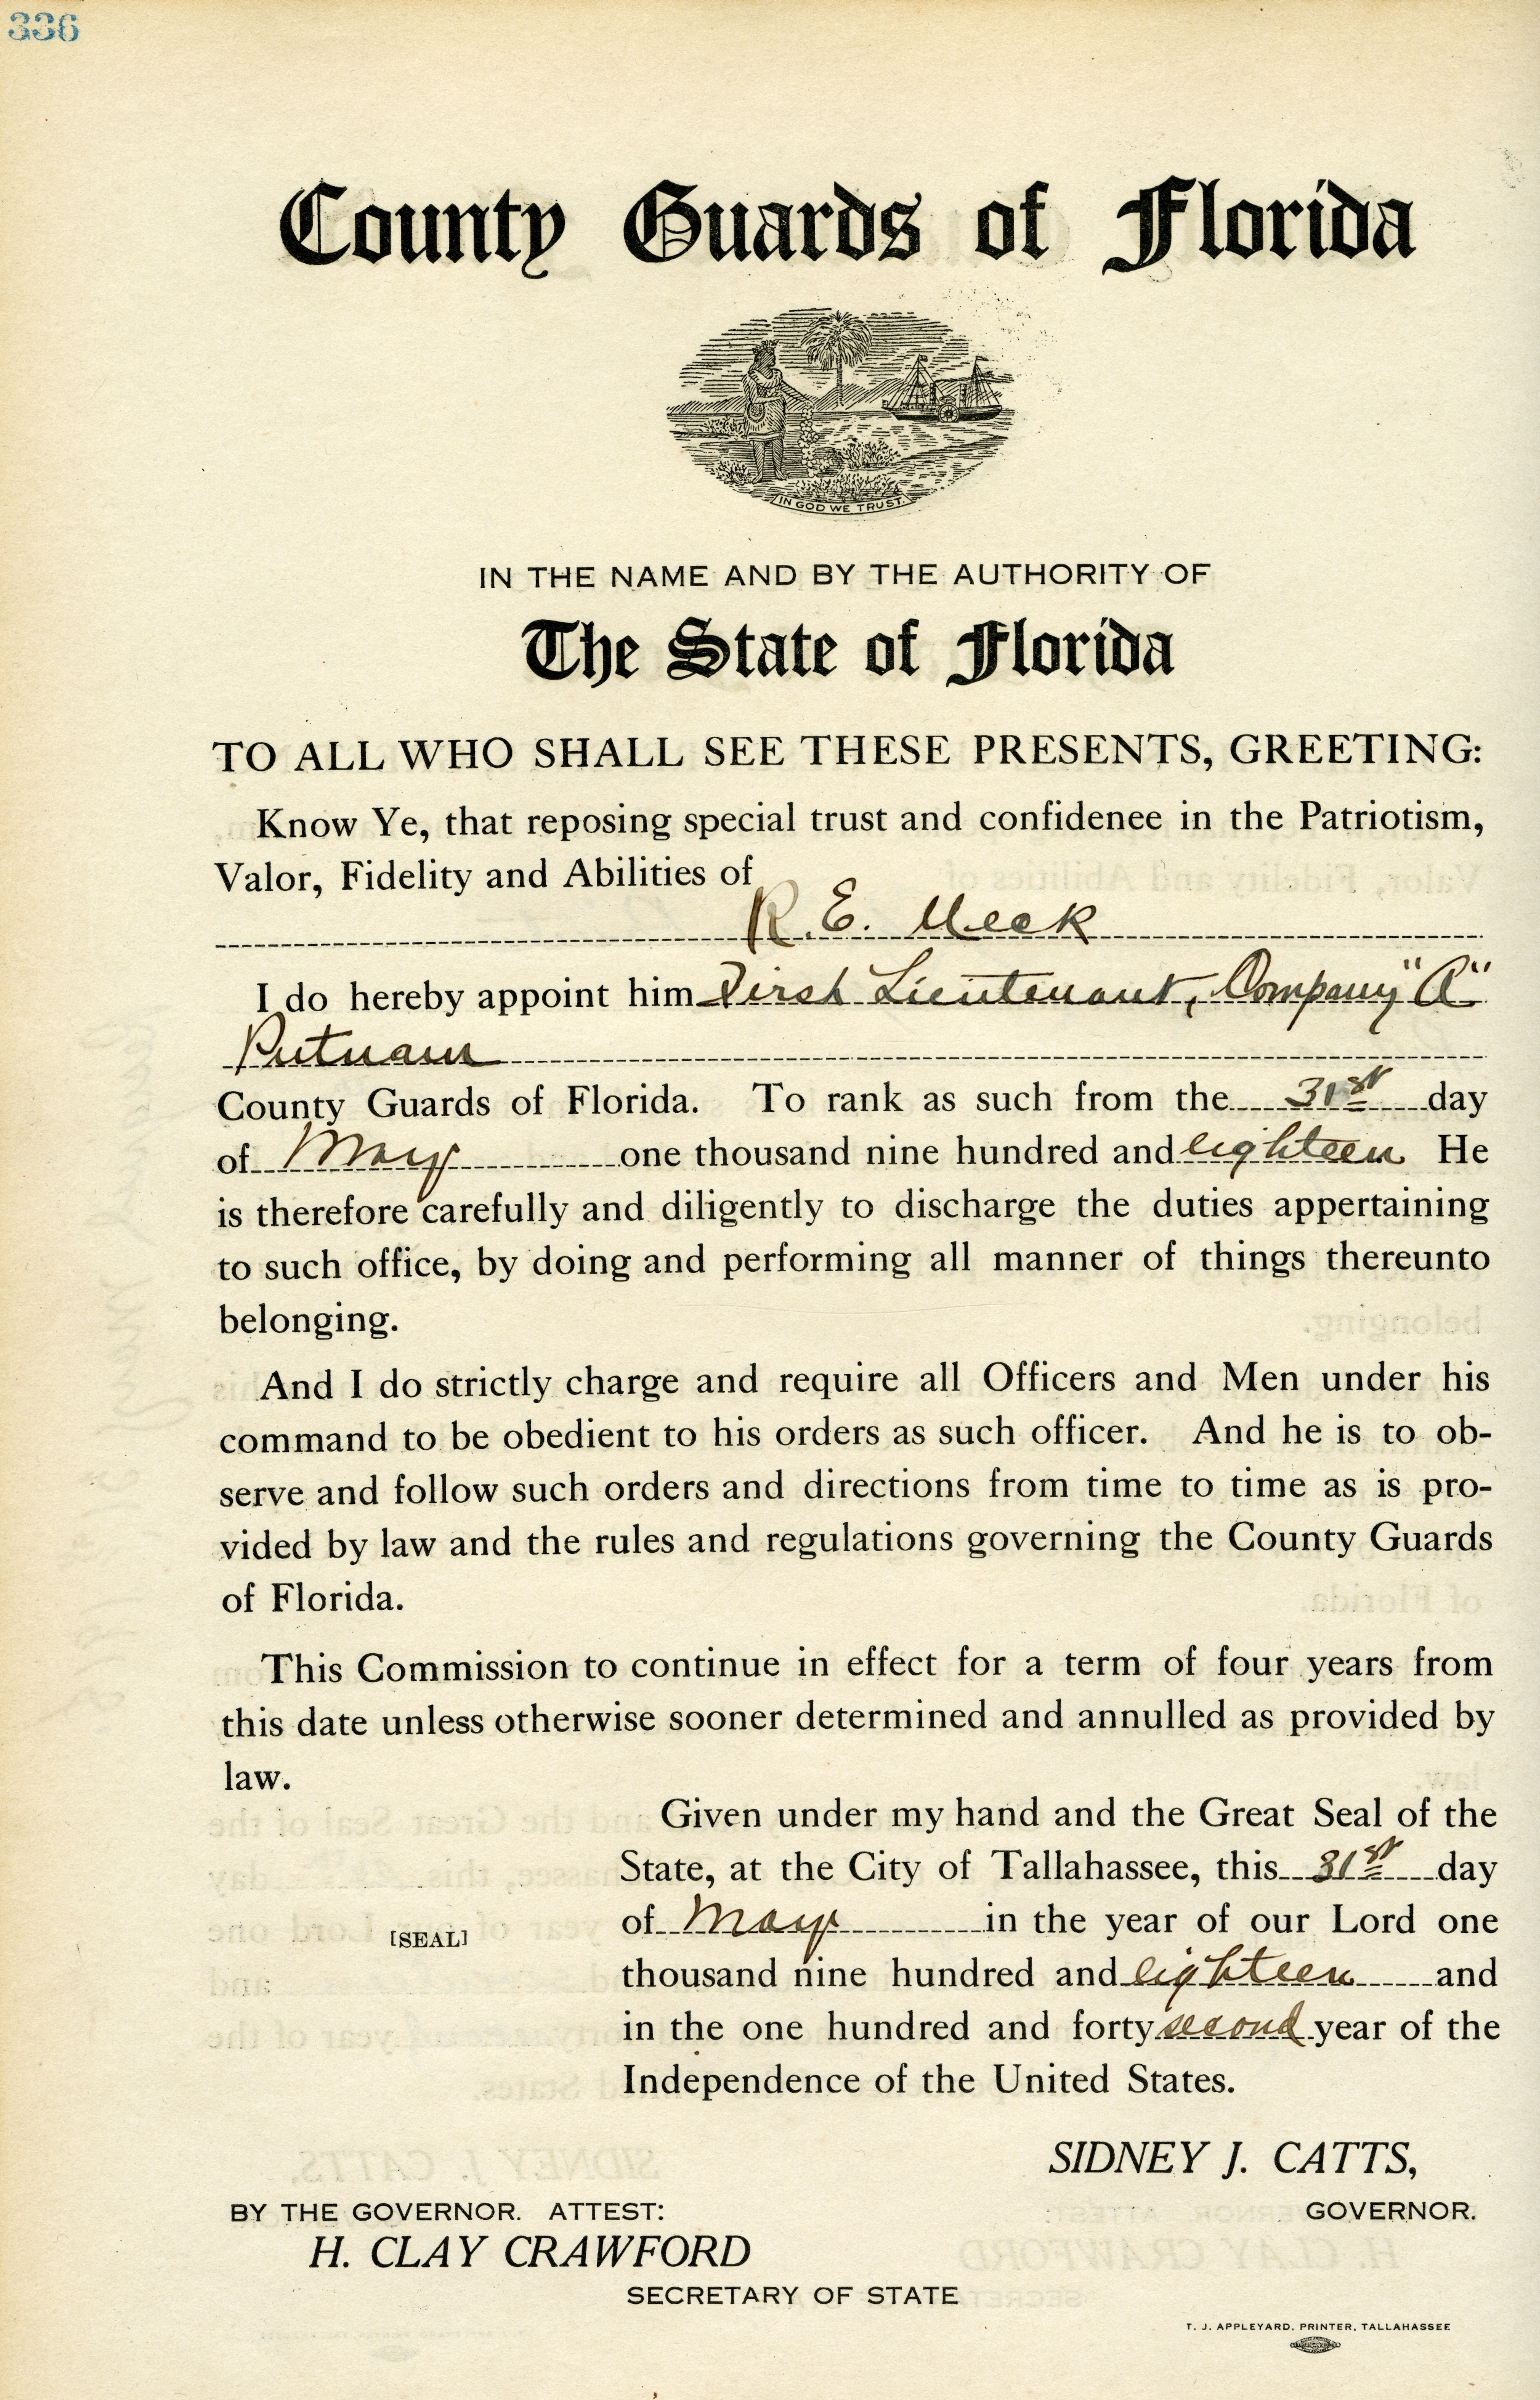 336
County Guards of Florida
IN GOD WE TRUST.
IN THE NAME AND BY THE AUTHORITY OF
The State of Florida
TO ALL WHO SHALL SEE THESE PRESENTS, GREETING:
Know Ye, that reposing special trust and confidenee in the Patriotism,
Valor, Fidelity and Abilities of
R. E. Meek
I do hereby appoint him First Lieutenant, Company "A"
Putnam
County Guards of Florida. To rank as such from the 31st day
of May one thousand nine hundred and eighteen He
is therefore carefully and diligently to discharge the duties appertaining
to such office, by doing and performing all manner of things thereunto
belonging.
And I do strictly charge and require all Officers and Men under his
command to be obedient to his orders as such officer. And he is to ob-
serve and follow such orders and directions from time to time as is pro-
vided by law and the rules and regulations governing the County Guards
of Florida.
This Commission to continue in effect for a term of four years from
this date unless otherwise sooner determined and annulled as provided by
law.
Given under my hand and the Great Seal of the
State, at the City of Tallahassee, this 31st day
of May in the year of our Lord one
[SEAL]
thousand nine hundred and eighteen and
in the one hundred and forty second year of the
Independence of the United States.
SIDNEY J. CATTS,
GOVERNOR.
BY THE GOVERNOR. ATTEST:
H. CLAY CRAWFORD
SECRETARY OF STATE
T. J. APPLEYARD, PRINTER, TALLAHASSEE